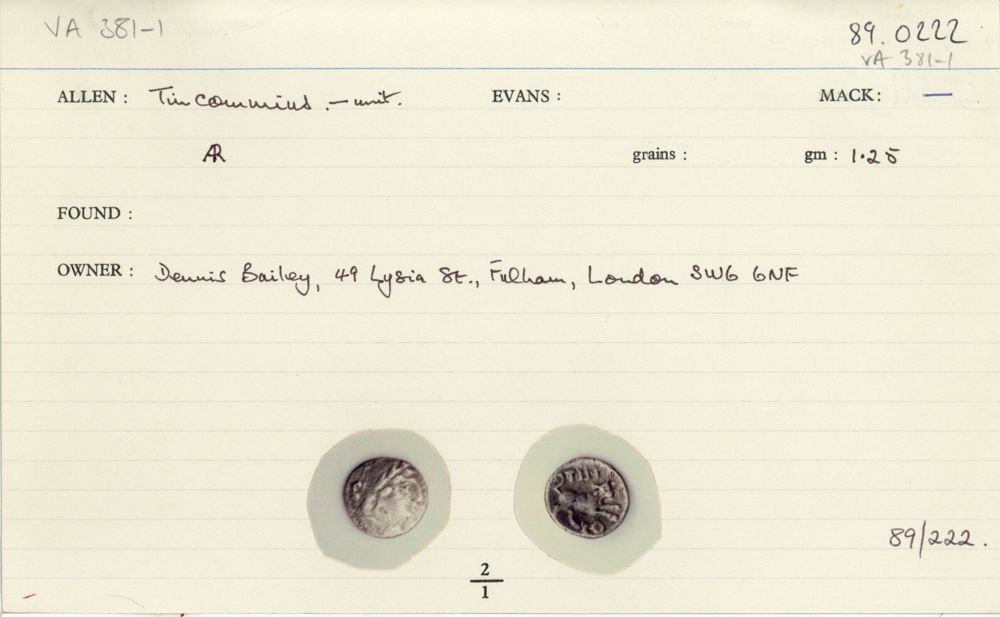 VA 381-1
89.0222
VA 381-1
ALLEN : Tincommius - unit. EVANS : MACK: —
AR grains : gm : 1.25
FOUND :
OWNER : Dennis Bailey, 49 Lysia St., Fulham, London SW6 6NF
TIN
89/222.
2
1